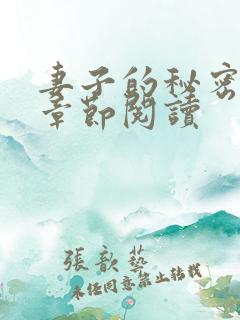 妻子的秘密
章節閱讀
張歆藝
未經同意禁止轉載